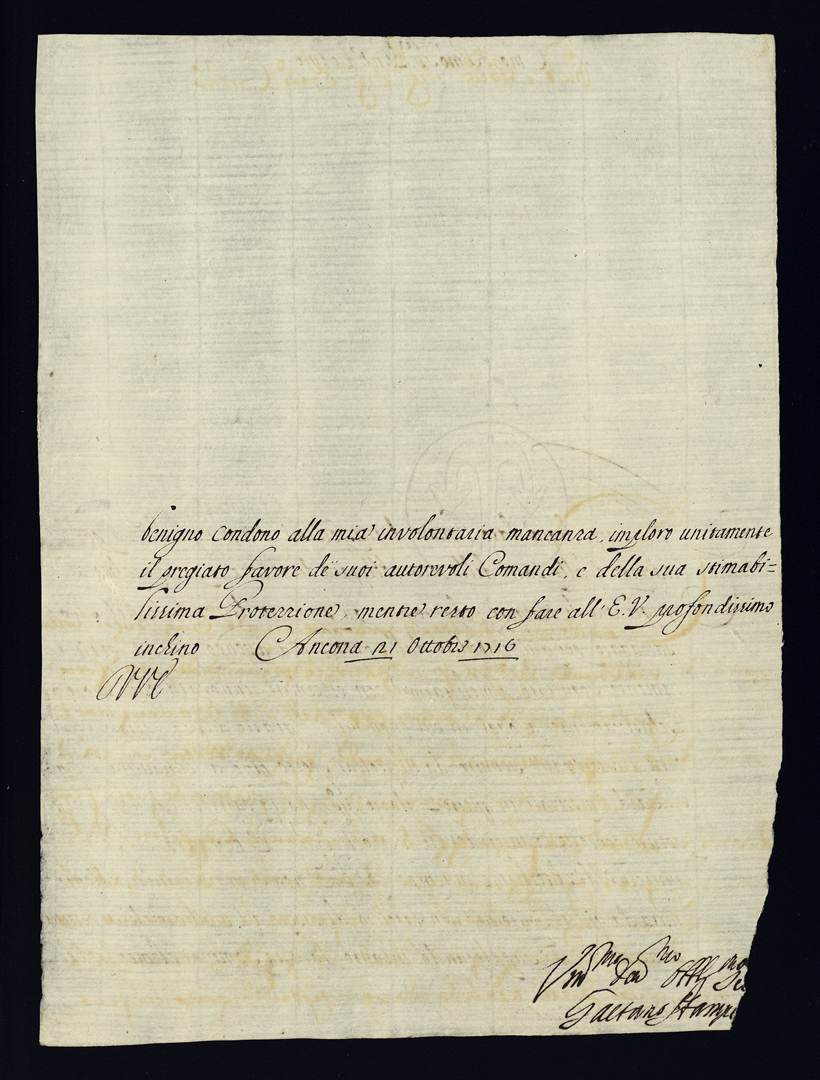 benigno condono alla mia involontaria mancanza, imploro unitamente
il pregiato favore de suoi autorevoli Comandi, e della sua stimabi=
lissima Protezzione, mentre resto con fare all' E. V. profondissimo
inchino Ancona 21 Ottobre 1716
Gaetano